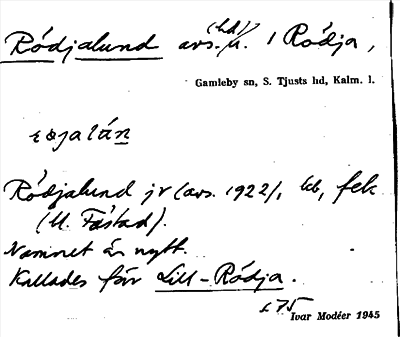 Rödjalund avs. (hd) u. 1 Rödja,
Gamleby sn, S. Tjusts hd, Kalm. l.
Rödjalund jr (avs. 1922), kb, fek
(U. Fåstad).
Namnet är nytt.
Kallades förr Lill-Rödja.
s 75
Ivar Modéer 1945